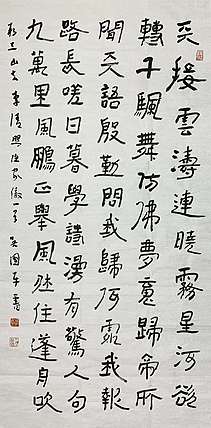 天接雲濤連曉霧星河欲
轉千颿舞仿佛夢魂歸帝所
聞天語殷勤問我歸何處我報
路長嗟日暮學詩漫有驚人句
九萬里風鵬正舉風休住蓬舟吹
取三山去李清照漁家傲一首吳國平書